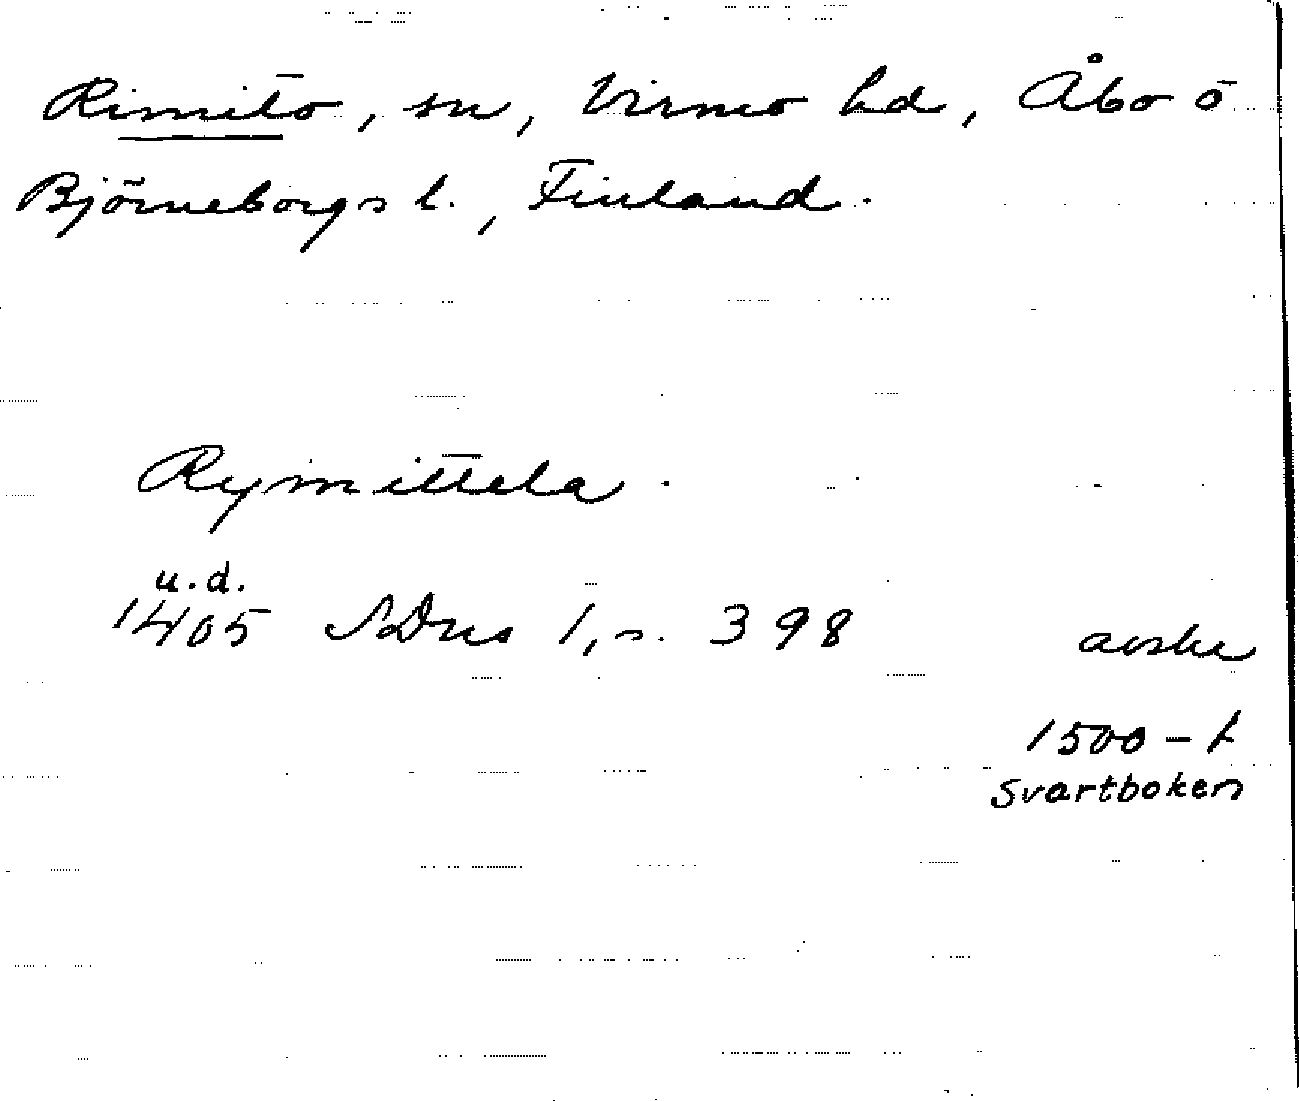 Rimito, sn, Virmo hd, Åbo o
Björneborgs l., Finland.
Rymittela
u.d.
1405 SDns 1, s. 398 avskr
1500-t
Svartboken